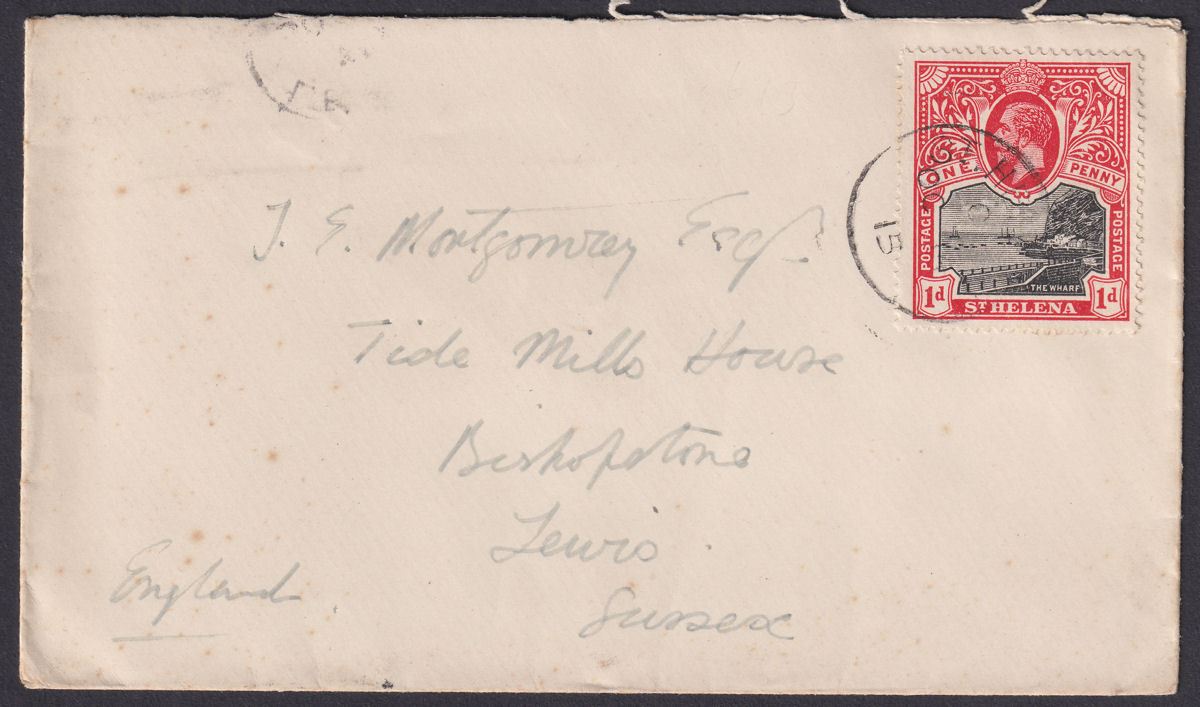 ONE PENNY
POSTAGE
POSTAGE
THE WHARF
1d
ST HELENA
1d
15
J. E. Montgomrey Esqr.
Tide Mills House
Bishopstone
Lewis.
Sussex
England